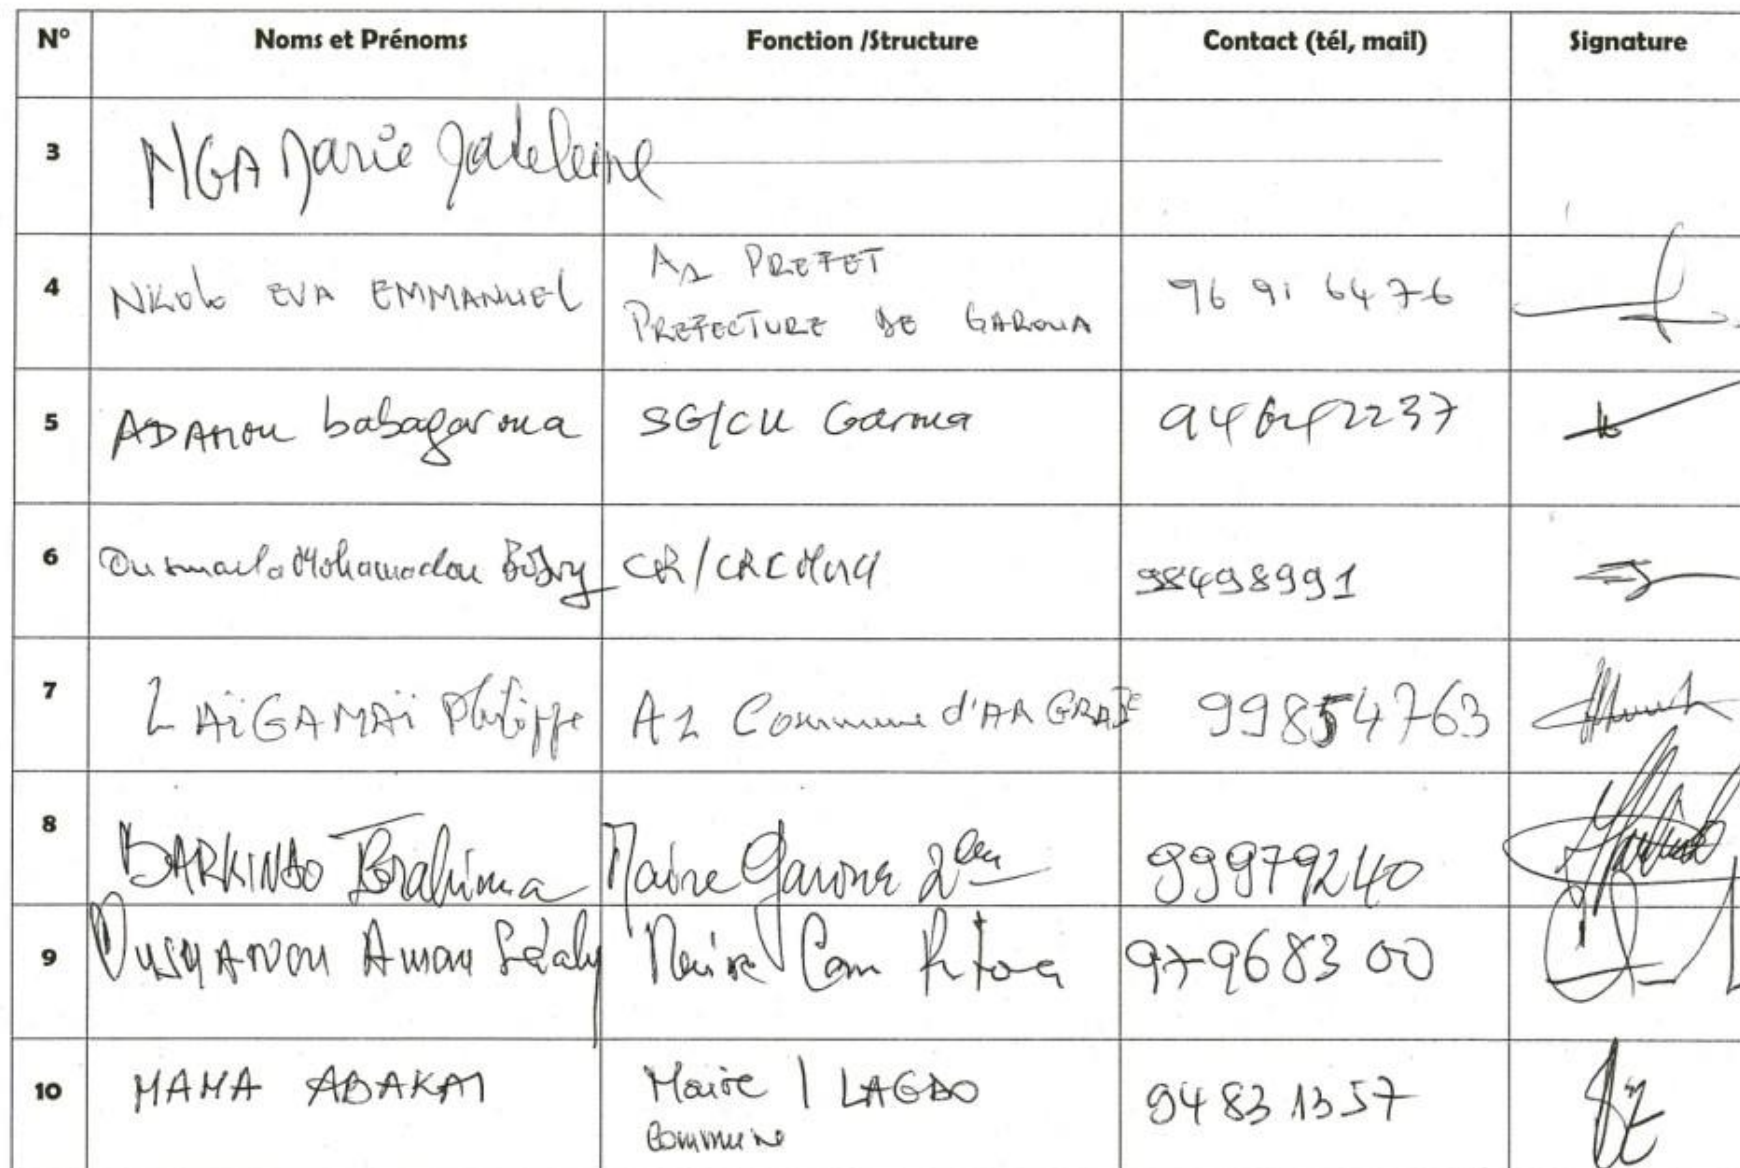 N° Noms et Prénoms Fonction /Structure Contact (tél, mail) Signature
3 NGA Marie Madeleine
4 EVA EMMANUEL A1 PREFET
PREFECTURE DE GAROUA 96 91 64 76
5 ADAMOU babagaroua SG/CU Garoua
6 Ousmaila Mohamadou 98498991
7 LAÏGAMAÏ Philippe A1 Commune d'ARGRADE 99854763
8 BARKINDO Ibrahima Maire Garoua 2em 99979240
9 OUSMANOU Maire Com Pitoa 97968300
10 MAMA ABAKAI Maire / LAGDO
Commune 94 83 13 57